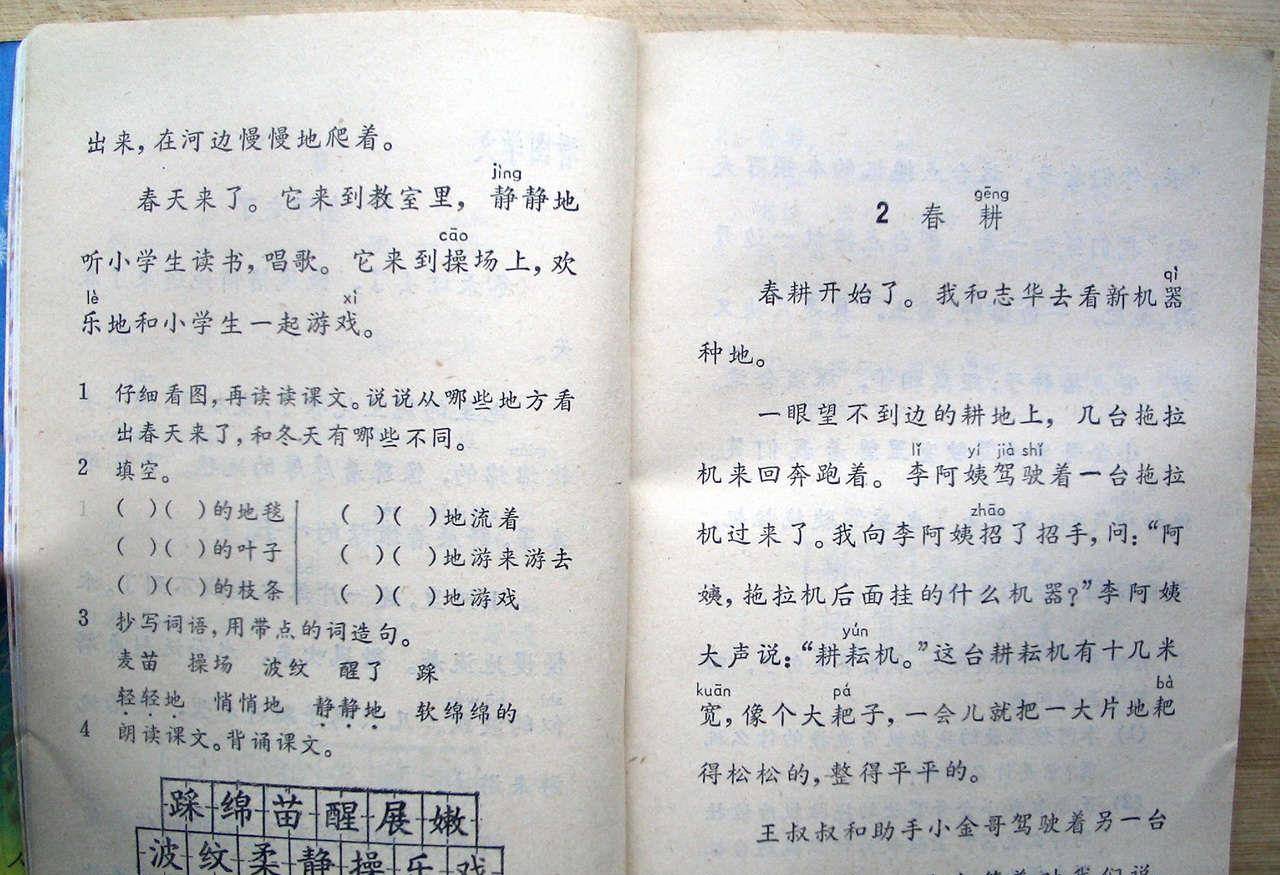 出来，在河边慢慢地爬着。
jìng
春天来了。它来到教室里，静静地
cāo
听小学生读书，唱歌。它来到操场上，欢
lè xì
乐地和小学生一起游戏。
1 仔细看图，再读读课文。说说从哪些地方看
出春天来了，和冬天有哪些不同。
2 填空。
（ ）（ ）的地毯 （ ）（ ）地流着
（ ）（ ）的叶子 （ ）（ ）地游来游去
（ ）（ ）的枝条 （ ）（ ）地游戏
3 抄写词语，用带点的词造句。
麦苗 操场 波纹 醒了 踩
轻轻地 悄悄地 静静地 软绵绵的
4 朗读课文。背诵课文。
踩绵苗醒展嫩
波纹柔静操乐戏
gēng
2 春 耕
qì
春耕开始了。我和志华去看新机器
种地。
一眼望不到边的耕地上，几台拖拉
lǐ yí jià shǐ
机来回奔跑着。李阿姨驾驶着一台拖拉
zhāo
机过来了。我向李阿姨招了招手，问：“阿
姨，拖拉机后面挂的什么机器？”李阿姨
yún
大声说：“耕耘机。”这台耕耘机有十几米
kuān pá bà
宽，像个大耙子，一会儿就把一大片地耙
得松松的，整得平平的。
王叔叔和助手小金哥驾驶着另一台